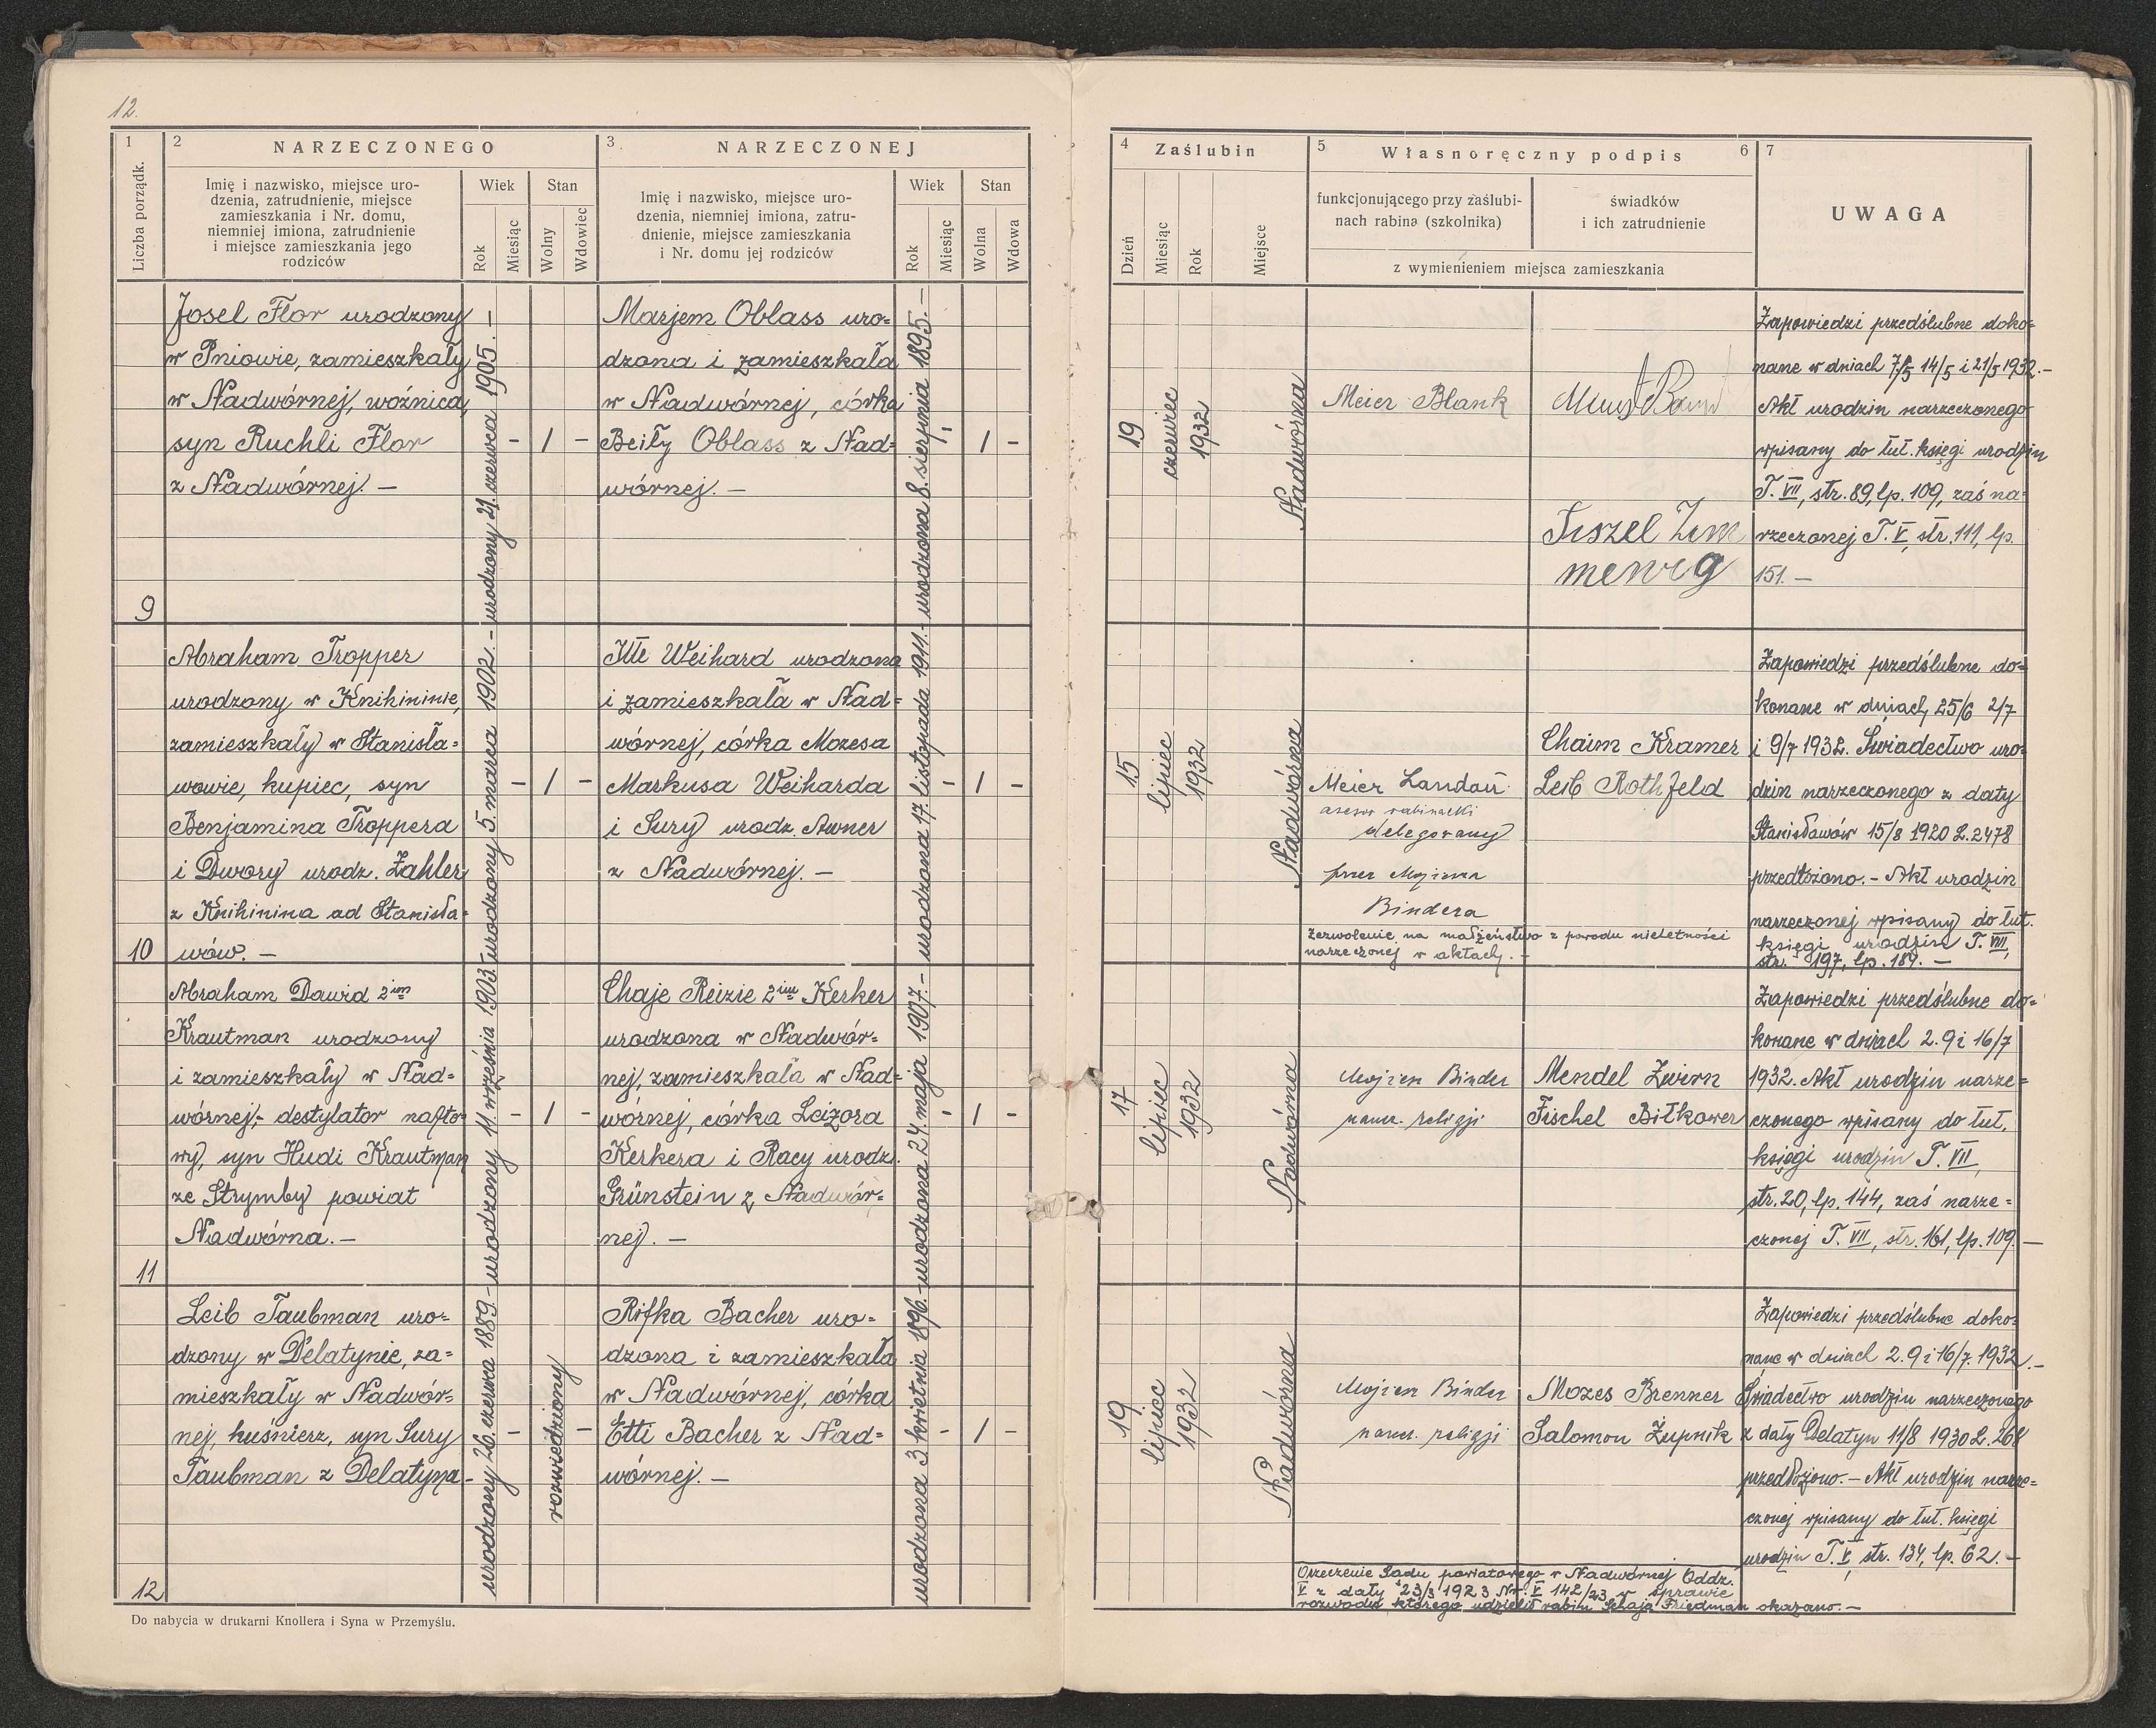 12.
1
2
NARZECZONEGO
3
NARZECZONEJ
Liczba porządk.
Imię i nazwisko, miejsce uro-
dzenia, zatrudnienie, miejsce
zamieszkania i Nr. domu,
niemniej imiona, zatrudnienie
i miejsce zamieszkania jego
rodziców
Wiek
Stan
Rok
Miesiąc
Wolny
Wdowiec
Imię i nazwisko, miejsce uro-
dzenia, niemniej imiona, zatru-
dnienie, miejsce zamieszkania
i Nr. domu jej rodziców
Wiek
Stan
Rok
Miesiąc
Wolna
Wdowa
4
Zaślubin
5
Własnoręczny podpis
6
7
Dzień
Miesiąc
Rok
Miejsce
funkcjonującego przy zaślubi-
nach rabina (szkolnika)
świadków
i ich zatrudnienie
z wymienieniem miejsca zamieszkania
UWAGA
9
Josel Flor urodzony
w Pniowie, zamieszkały
w Nadwórnej, woźnica,
syn Ruchli Flor
z Nadwórnej. —
urodzony 21. czerwca 1905. —
- 1 -
Marjem Oblass uro=
dzona i zamieszkała
w Nadwórnej, córka
Beiły Oblass z Nad=
wórnej. —
urodzona 8. sierpnia 1895. —
- 1 -
19
czerwiec
1932
Nadwórna
Meier Blank
Fiszel Zim
merweg
Zapowiedzi przedślubne doko=
nane w dniach 7/5 14/5 i 21/5 1932. —
Akt urodzin narzeczonego
wpisany do tut. księgi urodzin
T. VII, str. 89, lp. 109, zaś na=
rzeczonej T. V, str. 111, lp.
151. —
10
Abraham Tropper
urodzony w Knihininie,
zamieszkały w Stanisła=
wowie, kupiec, syn
Benjamina Troppera
i Dwory urodz. Zahler
z Knihinina ad Stanisła=
wów. —
urodzony 5. marca 1902. —
- 1 -
Itte Weihard urodzona
i zamieszkała w Nad=
wórnej, córka Mozesa
Markusa Weiharda
i Sury urodz. Awner
z Nadwórnej. —
urodzona 17. listopada 1911. —
- 1 -
15
lipiec
1932
Nadwórna
Meier Landau
asesor rabinacki
delegowany
przez Mojżesza
Bindera
Chaim Kramer
Leib Rothfeld
zezwolenie na małżeństwo z powodu nieletności
narzeczonej w aktach. —
Zapowiedzi przedślubne do=
konane w dniach 25/6 2/7
i 9/7 1932. Świadectwo uro=
dzin narzeczonego z daty
Stanisławów 15/8 1920 L. 2478
przedłożono. - Akt urodzin
narzeczonej wpisany do tut.
księgi urodzin T. VIII,
str. 197, lp. 189. —
11
Abraham Dawid 2im
Krautman urodzony
i zamieszkały w Nad=
wórnej,- destylator nafto=
wy, syn Hudi Krautman
ze Strymby powiat
Nadwórna. —
urodzony 11. września 1903.
- 1 -
Chaje Reizie 2im Kerker
urodzona w Nadwór=
nej, zamieszkała w Nad=
wórnej, córka Leizora
Kerkera i Racy urodz.
Grünstein z Nadwór=
nej. —
urodzona 24. maja 1907. —
- 1 -
17
lipiec
1932
Nadwórna
Mojżesz Binder
naucz. religji
Mendel Zwirn
Fischel Bitkower
Zapowiedzi przedślubne do=
konane w dniach 2. 9 i 16/7
1932. Akt urodzin narze=
czonego wpisany do tut.
księgi urodzin T. VII,
str. 20, lp. 144, zaś narze=
czonej T. VII, str. 161, lp. 109. —
12
Leib Taubman uro=
dzony w Delatynie, za=
mieszkały w Nadwór=
nej, kuśnierz, syn Sury
Taubman z Delatyna. -
urodzony 26. czerwca 1889. —
-
rozwiedziony
-
Rifka Bacher uro=
dzona i zamieszkała
w Nadwórnej, córka
Etti Bacher z Nad=
wórnej. —
urodzona 3. kwietnia 1896. —
- 1 -
19
lipiec
1932
Nadwórna
Mojżesz Binder
naucz. religji
Mozes Brenner
Salomon Żupnik
Zapowiedzi przedślubne doko=
nane w dniach 2. 9 i 16/7. 1932. —
Świadectwo urodzin narzeczonego
z daty Delatyn 11/8 1930 L. 268
przedłożono. - Akt urodzin narze=
czonej wpisany do tut. księgi
urodzin T. V, str. 134, lp. 62. —
Orzeczenie Sądu powiatowego w Nadwórnej Oddz.
V z daty 23/3 1923 Nr. V 142/23 w sprawie
rozwodu którego udzielił rabin Schaja Friedman okazano. —
Do nabycia w drukarni Knollera i Syna w Przemyślu.